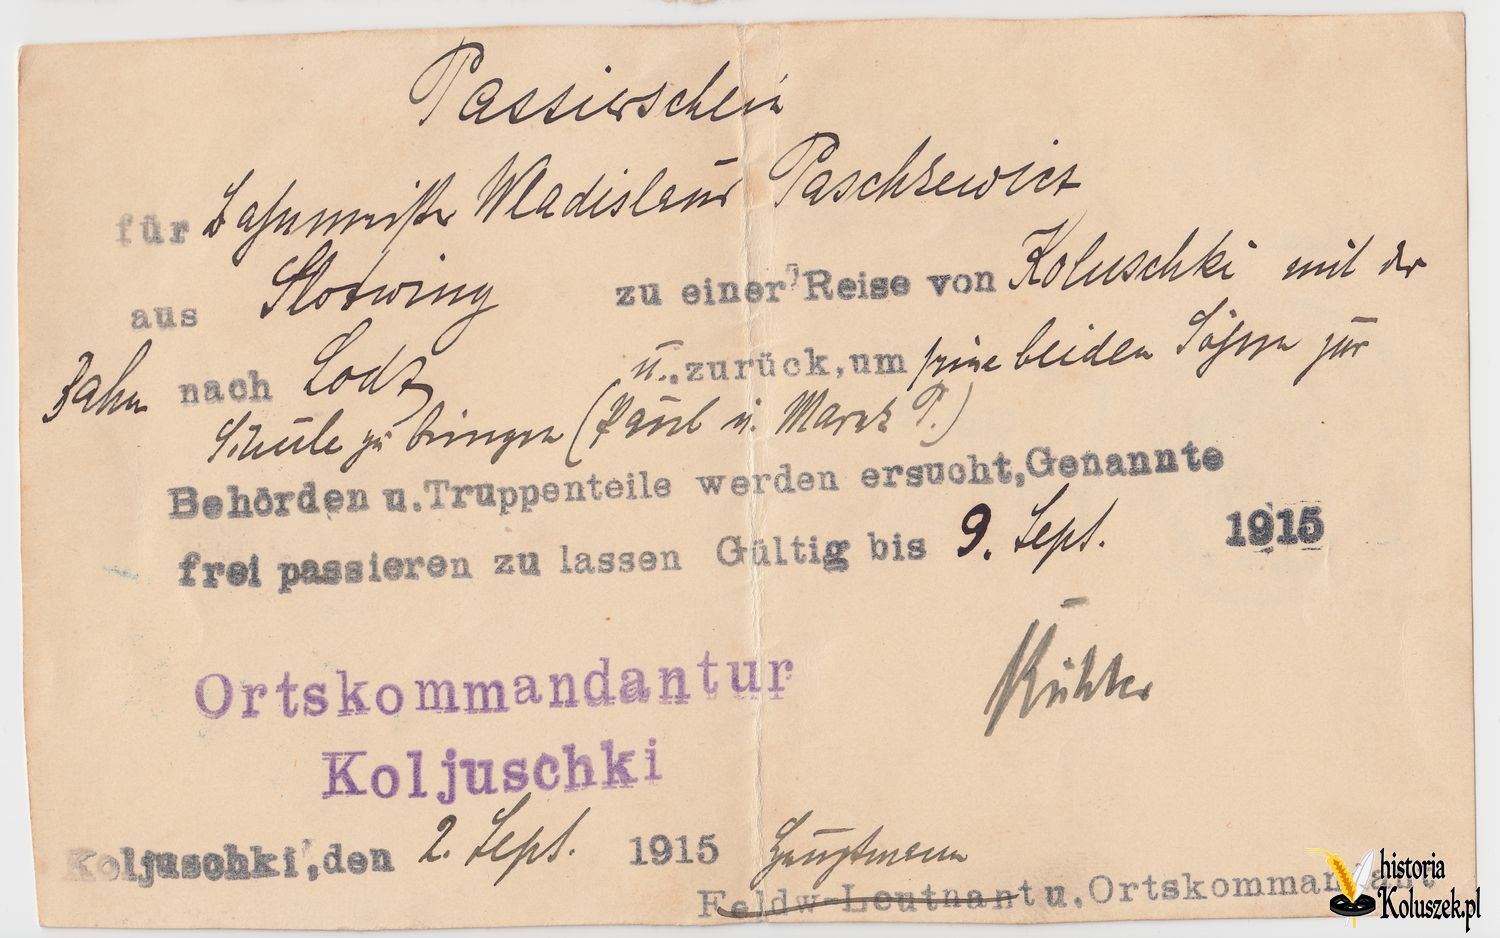 Passierschein
für Bahnmeister Wladislaus Paschkewicz
aus Slotwiny zu einer Reise von Koluschki mit der
Bahn nach Lodz u. zurück, um seine beiden Söhne zur
Schule zu bringen (Paul u. Marek P.)
Behörden u. Truppenteile werden ersucht, Genannte
frei passieren zu lassen Gültig bis 9. Sept. 1915
Ortskommandantur
Koljuschki
Koljuschki, den 2. Sept. 1915 Hauptmann
Feldw-Leutnant u. Ortskommandant
historia
Koluszek.pl